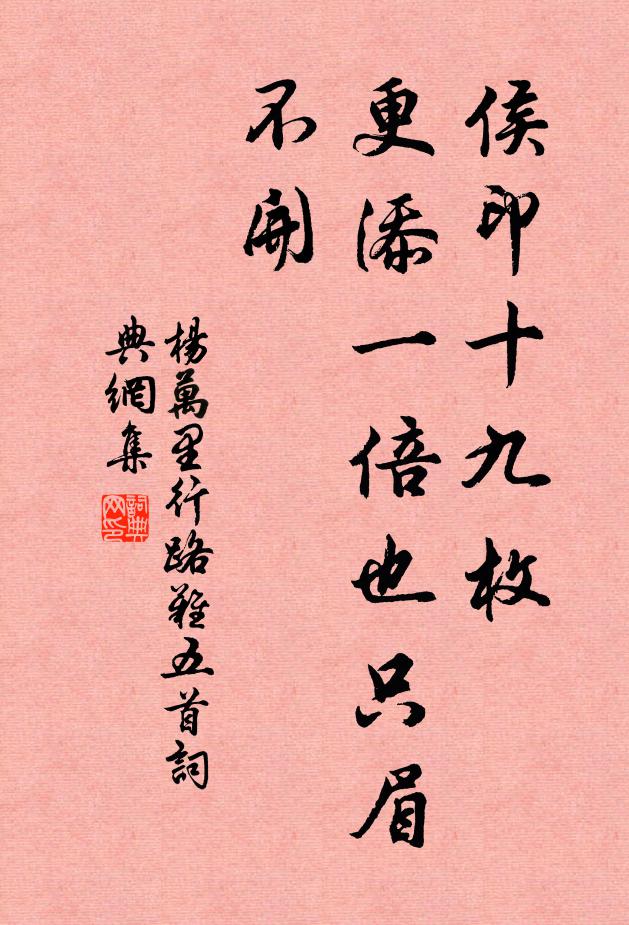 侯印十九枚
更添一倍也只眉
不開
楊萬里行路難五首詞
典網集
詞典
网印